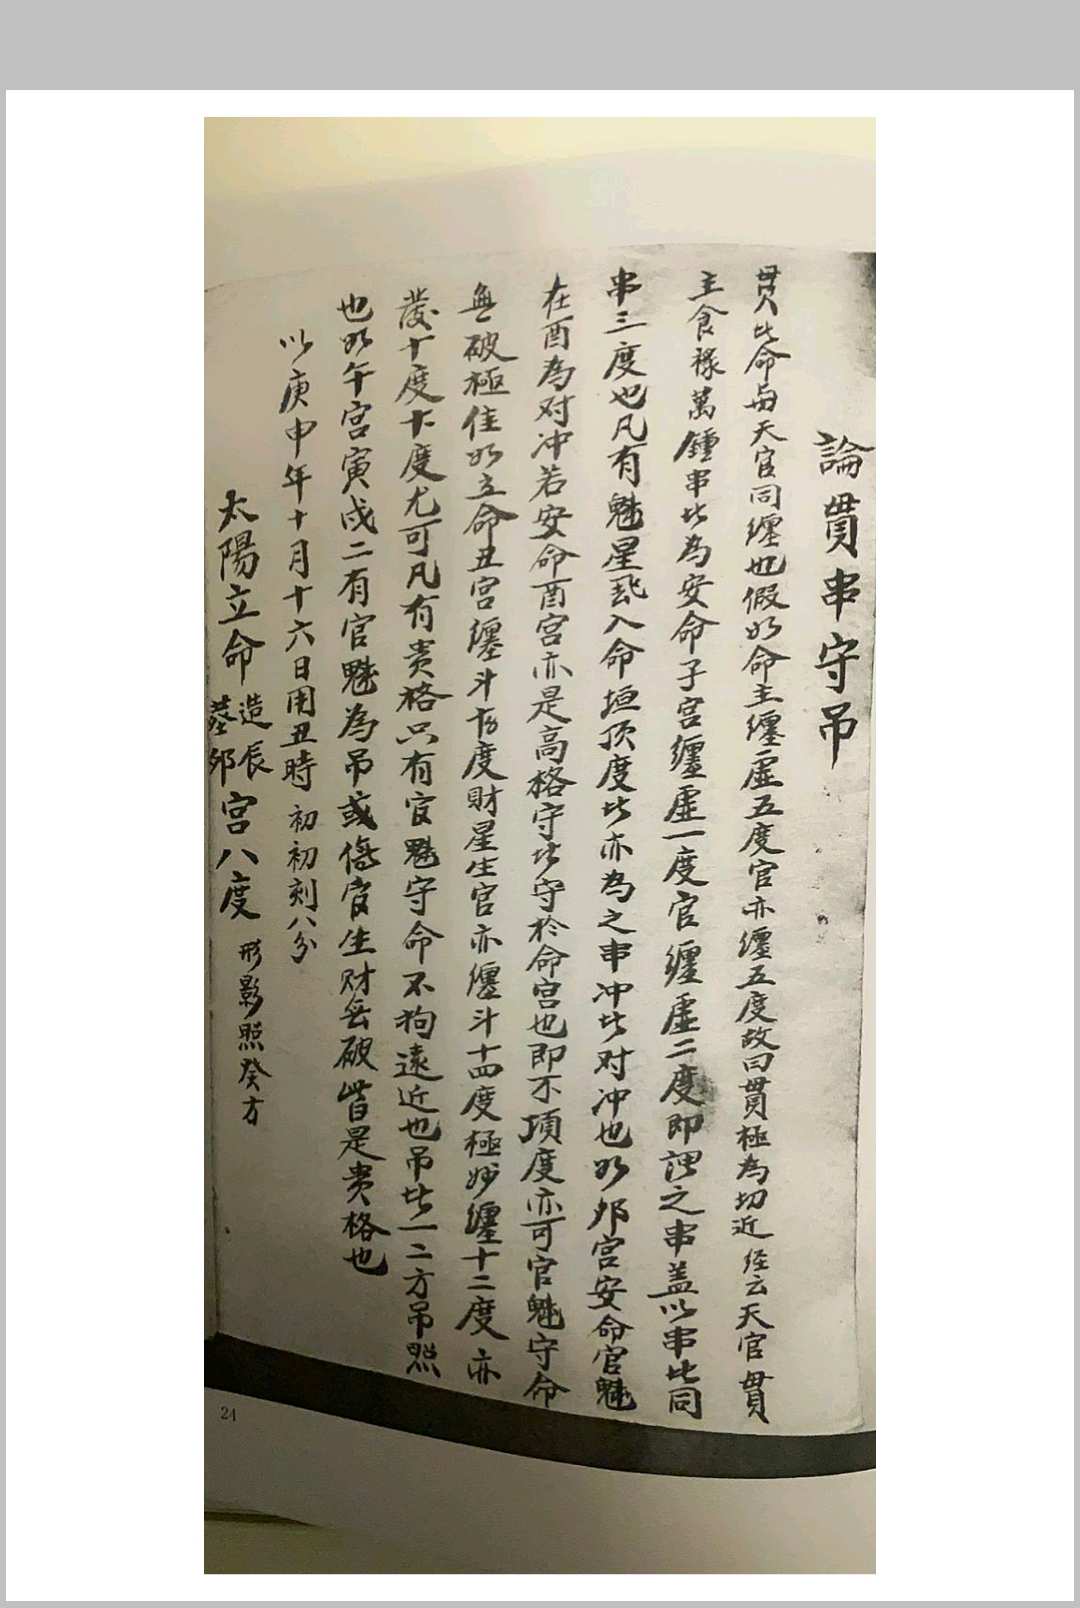 論貫串守吊
貫此命与天官同纏也假如命主纏虛五度官亦纏五度故曰貫極為切近经云天官貫
主食祿萬鍾串此為安命子宫纏虛一度官纏虛二度即謂之串盖以串此同
串三度也凡有魁星飛入命垣顶度此亦為之串冲此对冲也如邜宫安命官魁
在酉為对冲若安命酉宫亦是高格守此守於命宫也即不頂度亦可官魁守命
無破極佳如立命丑宫纏斗度財星生官亦纏斗十四度極妙纏十二度亦
發十度十度尤可凡有贵格只有官魁守命不拘遠近也吊此一二方吊照
也如午宫寅戌二有官魁為吊或傷官生财無破皆是贵格也
以庚申年十月十六日用丑時初初刻八分
太陽立命造辰葬邜宫八度形影照癸方
21